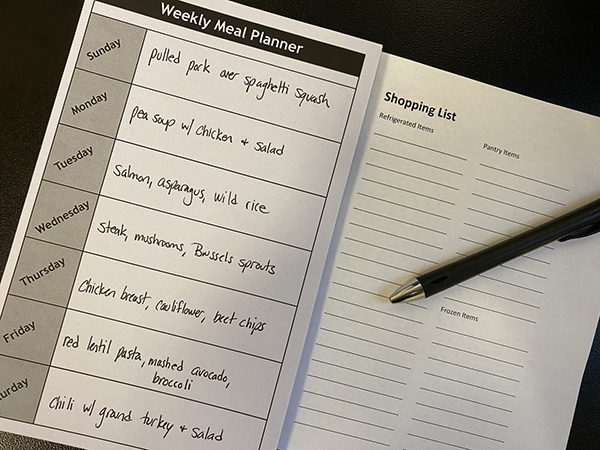 Weekly Meal Planner
Sunday
pulled pork over spaghetti squash
Monday
pea soup w/ chicken + salad
Tuesday
Salmon, asparagus, wild rice
Wednesday
Steak, mushrooms, Brussels sprouts
Thursday
Chicken breast, cauliflower, beet chips
Friday
red lentil pasta, mashed avocado,
broccoli
urday
Chili w/ grand turkey + salad
Shopping List
Refrigerated Items
Pantry Items
Frozen Items